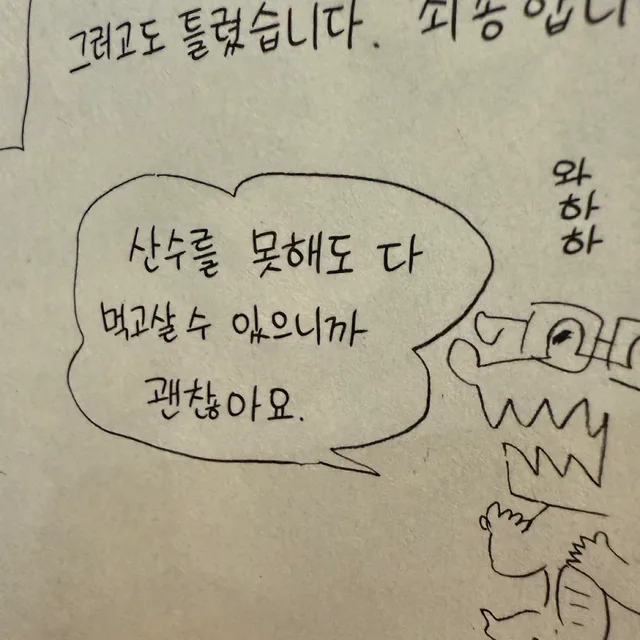 그러고도 틀렸습니다. 죄송합니
와
하
하
산수를 못해도 다
먹고살 수 있으니까
괜찮아요.